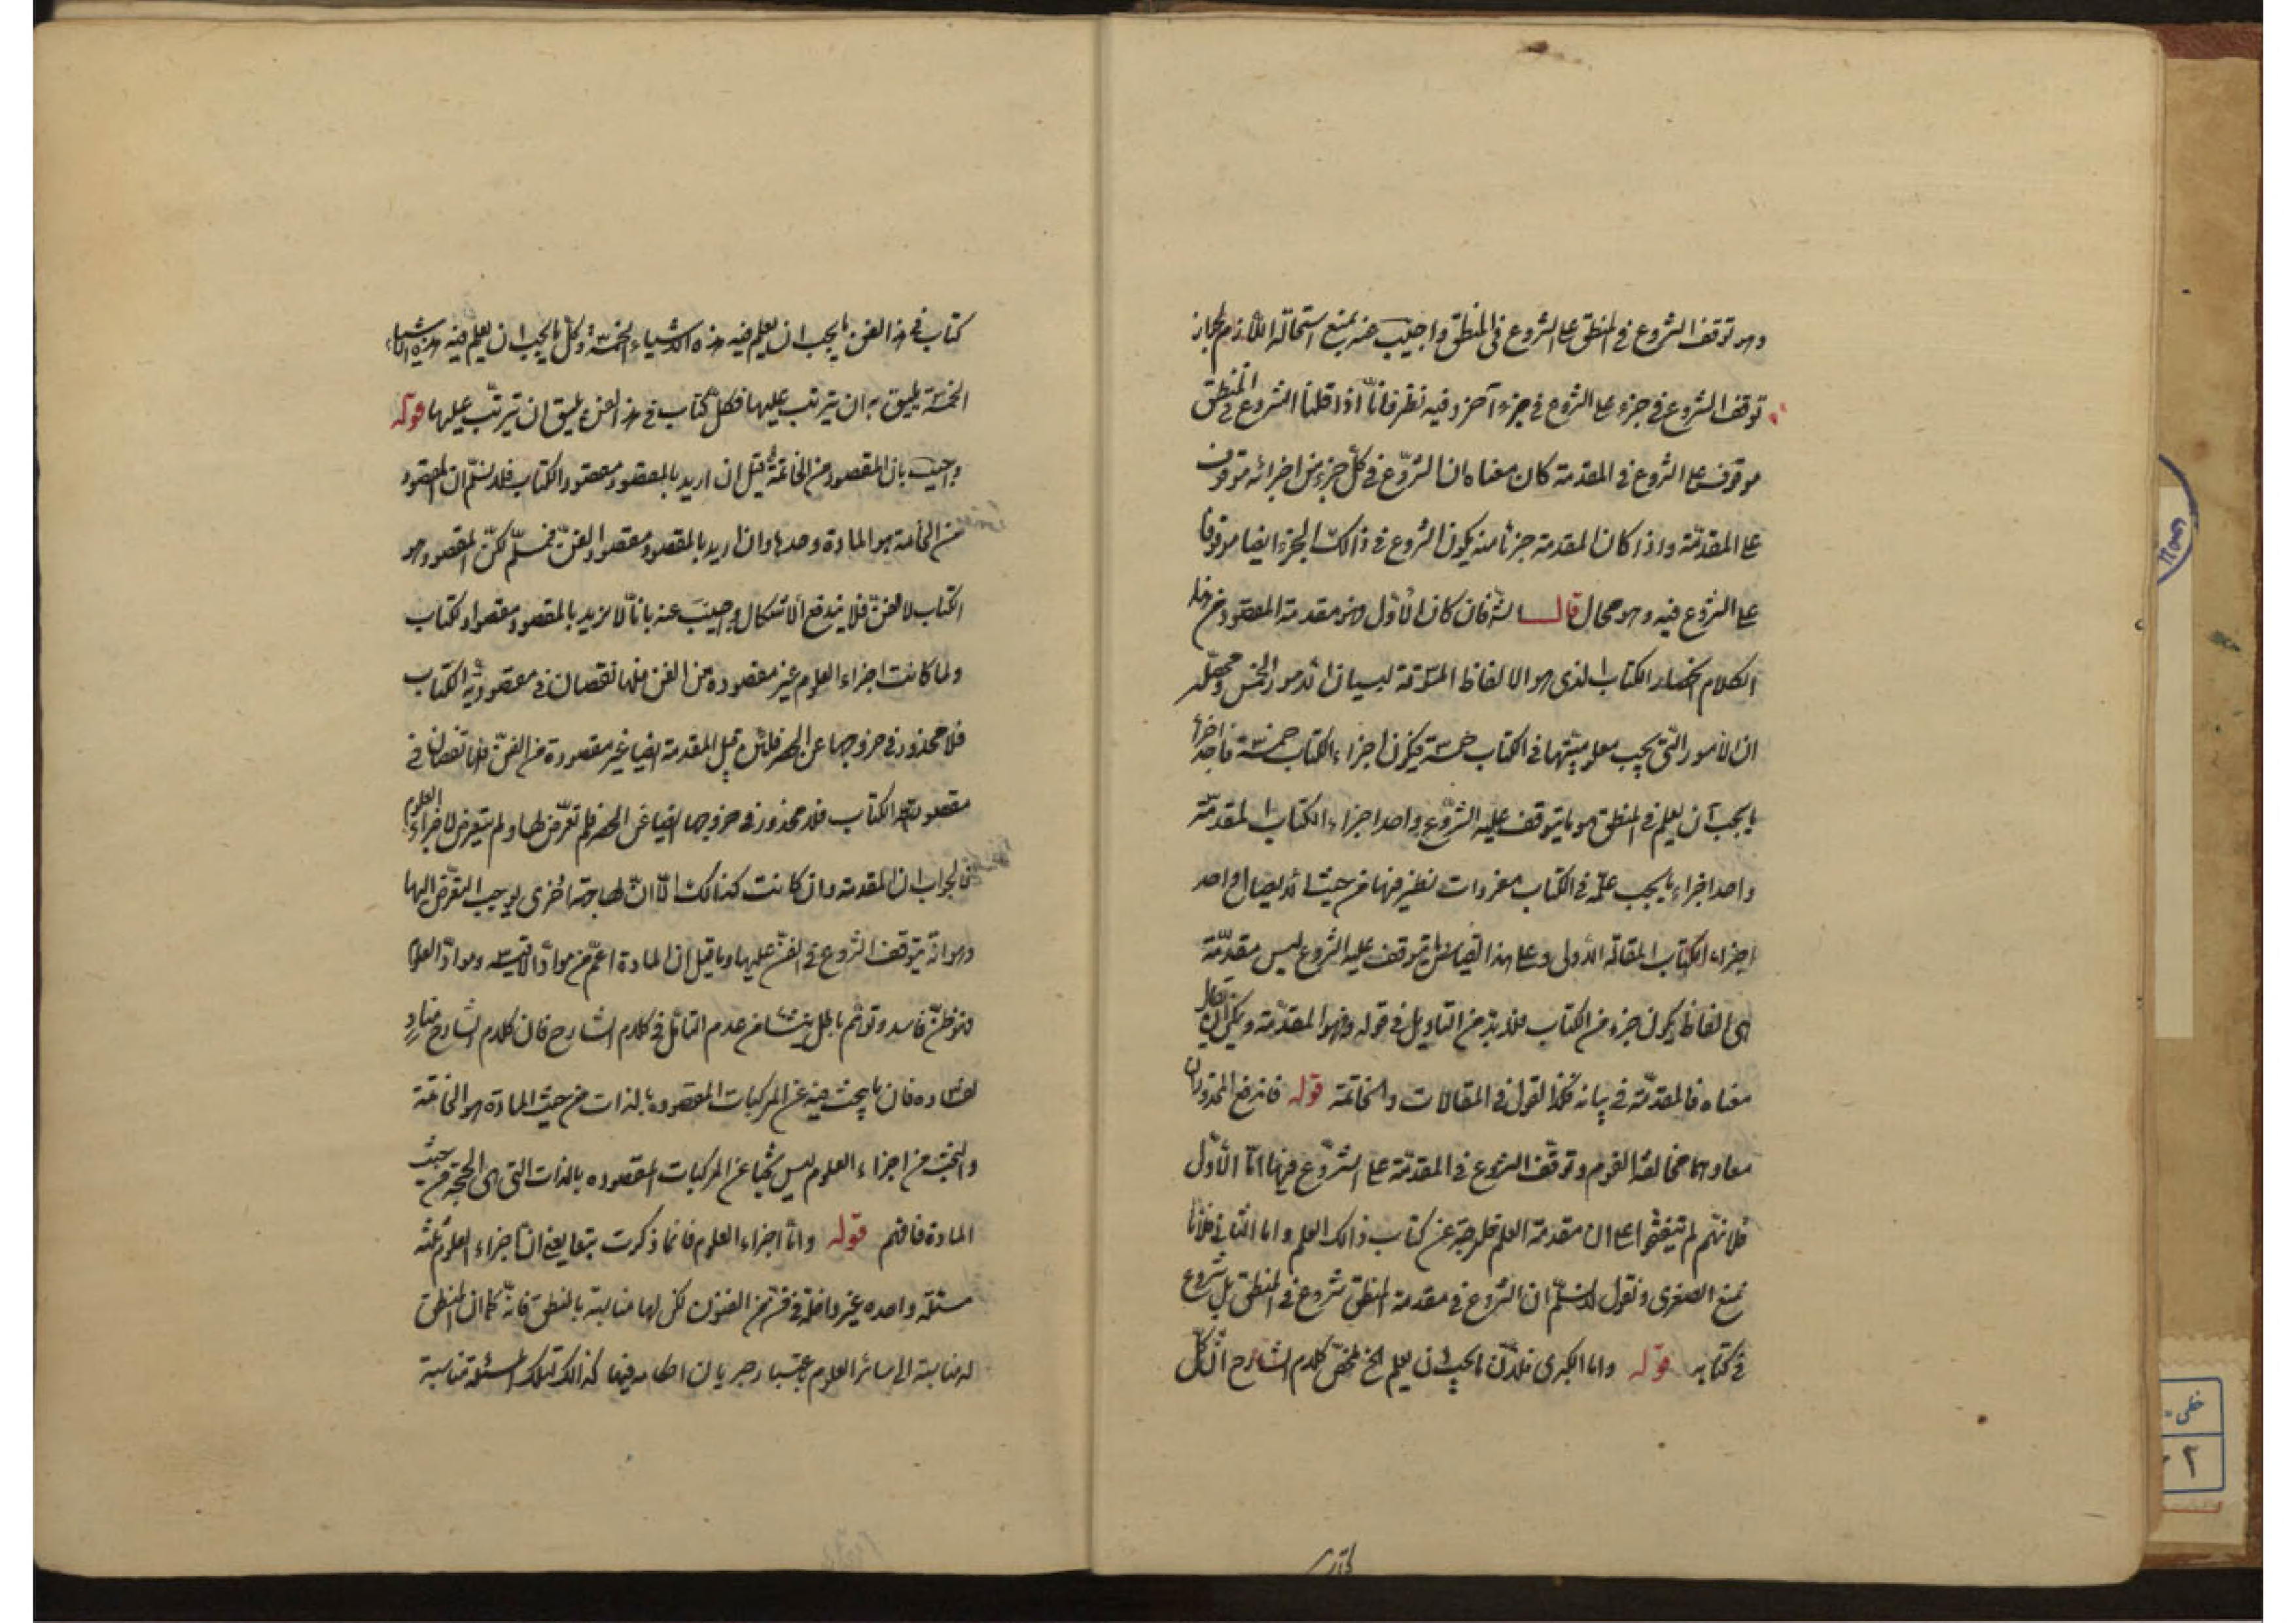 وهو توقف الشروع في المنطق على الشروع في المنطق واجيب عنه بمنع استحالة اللازم لجواز
توقف الشروع في جزء على الشروع في جزء آخر وفيه نظر فانا اذا قلنا الشروع في المنطق
موقوف على الشروع في المقدمة كان معناه ان الشروع في كل جزء من اجزائه متوقف
على المقدمة واذا كان المقدمة جزئا منه يكون الشروع في ذالك الجزء ايضا موقوفا
على الشروع فيه وهو محال قال فان كان الأول فهو مقدمة المقصود من هذا
الكلام انحصار الكتاب الذي هو الالفاظ المسوقة لبيان الامور الخمس ومحصله
ان الامور التي يجب معلوميتها في الكتاب خمسة فيكون اجزاء الكتاب خمسة فاحد اجزاء
ما يجب ان يعلم في المنطق هو ما يتوقف عليه الشروع واحد اجزاء الكتاب المقدمة
واحد اجزاء ما يجب علمه في الكتاب مفردات نظير فيها من حيث الايصال واحد
اجزاء الكتاب المقالة الاولى وعلى هذا القياس ما يتوقف عليه الشروع ليس مقدمة
اى الفاظ يكون جزء من الكتاب فلا بد من التاويل في قوله فهو المقدمة ويمكن ان يقال
معناه فالمقدمة في بيانه كذا القول في المقالات والخاتمة قوله فاندفع المحذوران
معا وهما مخالفة القوم وتوقف الشروع في المقدمة على الشروع فيها اما الأول
فلانهم لم يتفقوا على ان مقدمة العلم خارجة عن كتاب ذالك العلم واما الثاني فلانا
نمنع الصغرى ونقول لا نسلم ان الشروع في مقدمة المنطق شروع في المنطق بل شروع
في كتابه قوله واما الكبرى فلان ما يجب ان يعلم الخ ملخص كلام الشارح ان كل
كتاب في هذا الفن ما يجب ان يعلم فيه هذه الاشياء الخمسة وكل ما يجب ان يعلم فيه هذه الاشياء
الخمسة يليق به ان يترتب عليها فكل كتاب في هذا الفن يليق ان يترتب عليها قوله
واجيب بان المقصود من الخاتمة قيل ان اريد بالمقصود مقصود الكتاب فلا نسلم ان المقصود
من الخاتمة هو المادة وحدها وان اريد بالمقصود مقصود الفن فمسلم لكن المقصود هو
الكتاب لا الفن فلا يندفع الاشكال واجيب عنه بانا لا نريد بالمقصود مقصود الكتاب
ولما كانت اجزاء العلوم غير مقصودة من الفن فلها نقصان في مقصودية الكتاب
فلا محذور في خروجها عن الحصر فلئن قيل المقدمة ايضا غير مقصودة من الفن فلها نقصان في
مقصودية الكتاب فلا محذور في خروجها ايضا عن الحصر فلم تعرض لها ولم يتعرض لاجزاء العلوم
فالجواب ان المقدمة وان كانت كذالك الا ان لها جهة اخرى يوجب التعرض اليها
وهو انه يتوقف الشروع في الفن عليها وما قيل ان المادة اعم من مواد الاقيسة ومواد العلوم
فهو ظن فاسد وتوهم باطل ينشا من عدم التأمل في كلام الشارح فان كلام الشارح مناد
لفساده فان ما يبحث فيه عن المركبات المقصوده بالذات من حيث المادة هو الخاتمة
والبحث من اجزاء العلوم ليس بحثا عن المركبات المقصوده بالذات التي هي الحجة من حيث
المادة فافهم قوله واما اجزاء العلوم فانما ذكرت تبعا يعني ان اجزاء العلوم ثلثة
مسئلة واحده غير داخلة في فن من الفنون لكن لها مناسبة بالمنطق فانه كما ان المنطق
له مناسبة الى سائر العلوم باعتبار جريان احكامه فيها كذالك لتلك المسئلة مناسبة